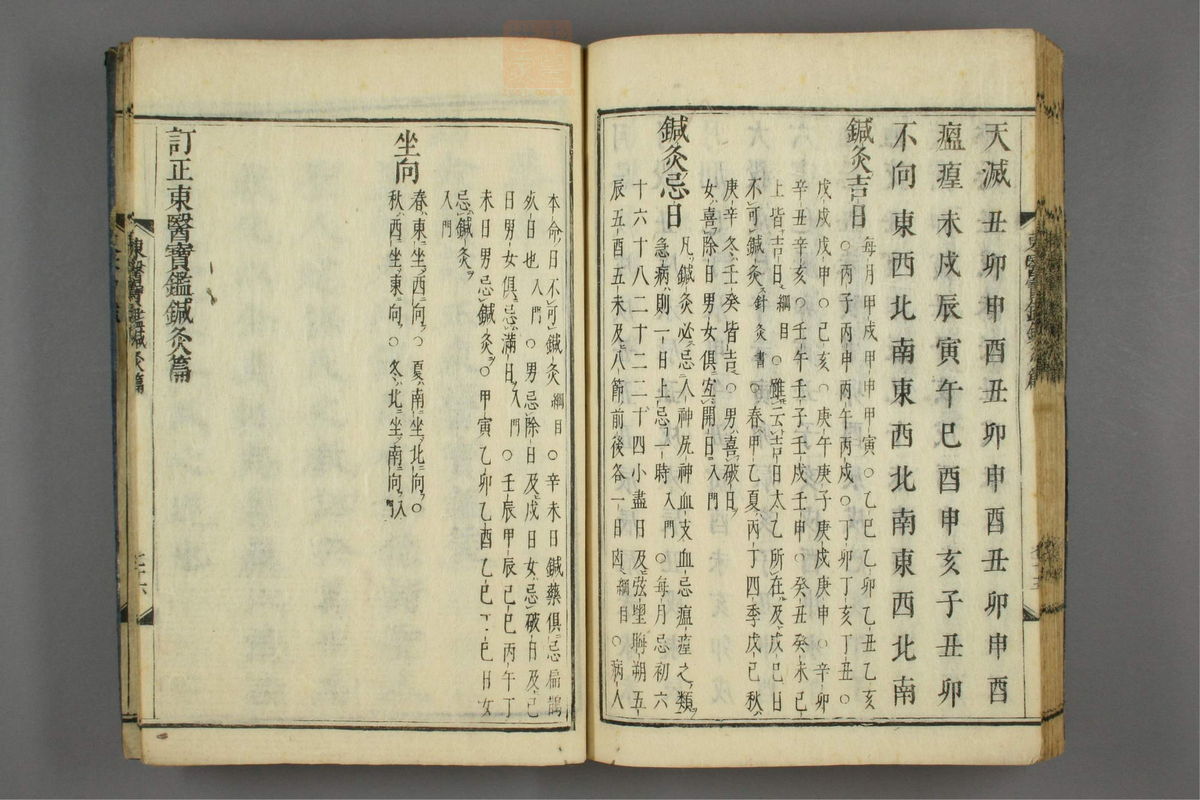 天滅丑卯申酉丑卯申酉丑卯申酉
瘟㾮未戌辰寅午巳酉申亥子丑卯
不向東西北南東西北南東西北南
鍼灸吉日
每月甲戌甲申甲寅○乙巳乙卯乙丑乙亥
○丙子丙申丙午丙戌○丁卯丁亥丁丑○
戊戌戊申○己亥○庚午庚子庚戌庚申○辛卯
辛丑辛亥○壬午壬子壬戌壬申○癸丑癸未已
上皆吉日綱目○雖云吉日太乙所在及戊己日
不可鍼灸針灸書○春甲乙夏丙丁四季戊己秋
庚辛冬壬癸皆吉○男喜破日
女喜除日男女俱宜開日入門
鍼灸忌日
凡鍼灸必忌人神尻神血支血忌瘟㾮之類
急病則一日上忌一時入門○每月忌初六
十六十八二十二二十四小盡日及弦望晦朔五
辰五酉五未及八節前後各一日凶綱目○病人
本命日不可鍼灸綱目○辛未日鍼藥俱忌扁鵲
死日也入門○男忌除日及戌日女忌破日及巳
日男女俱忌滿日入門○壬辰甲辰己巳丙午丁
未日男忌鍼灸○甲寅乙卯乙酉乙巳丁巳日女
忌鍼灸
入門
坐向
春東坐西向○夏南坐北向○
秋西坐東向○冬北坐南向入
訂正東醫寶鑑鍼灸篇
東醫寶鑑鍼灸篇